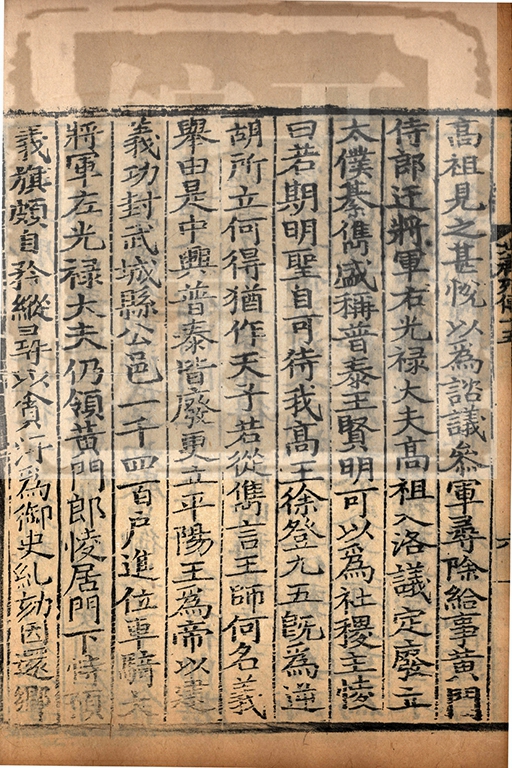 高祖見之甚恱以為諮議參軍尋除給事黃門
侍郎迁將軍右光禄大夫高祖入洛議定廢立
太僕綦儁盛稱普泰王賢明可以為社稷主㥄
曰若期明聖自可待我高王徐登九五旣為逆
胡所立何得猶作天子若從儁言王師何名義
舉由是中興普泰皆廢更立平陽王為帝以建
義功封武城縣公邑一千四百戶進位車騎大
將軍左光禄大夫仍領黃門郎㥄居門下恃預
義旗頗自矜縱尋以貪汙為御史糺劾因還鄉